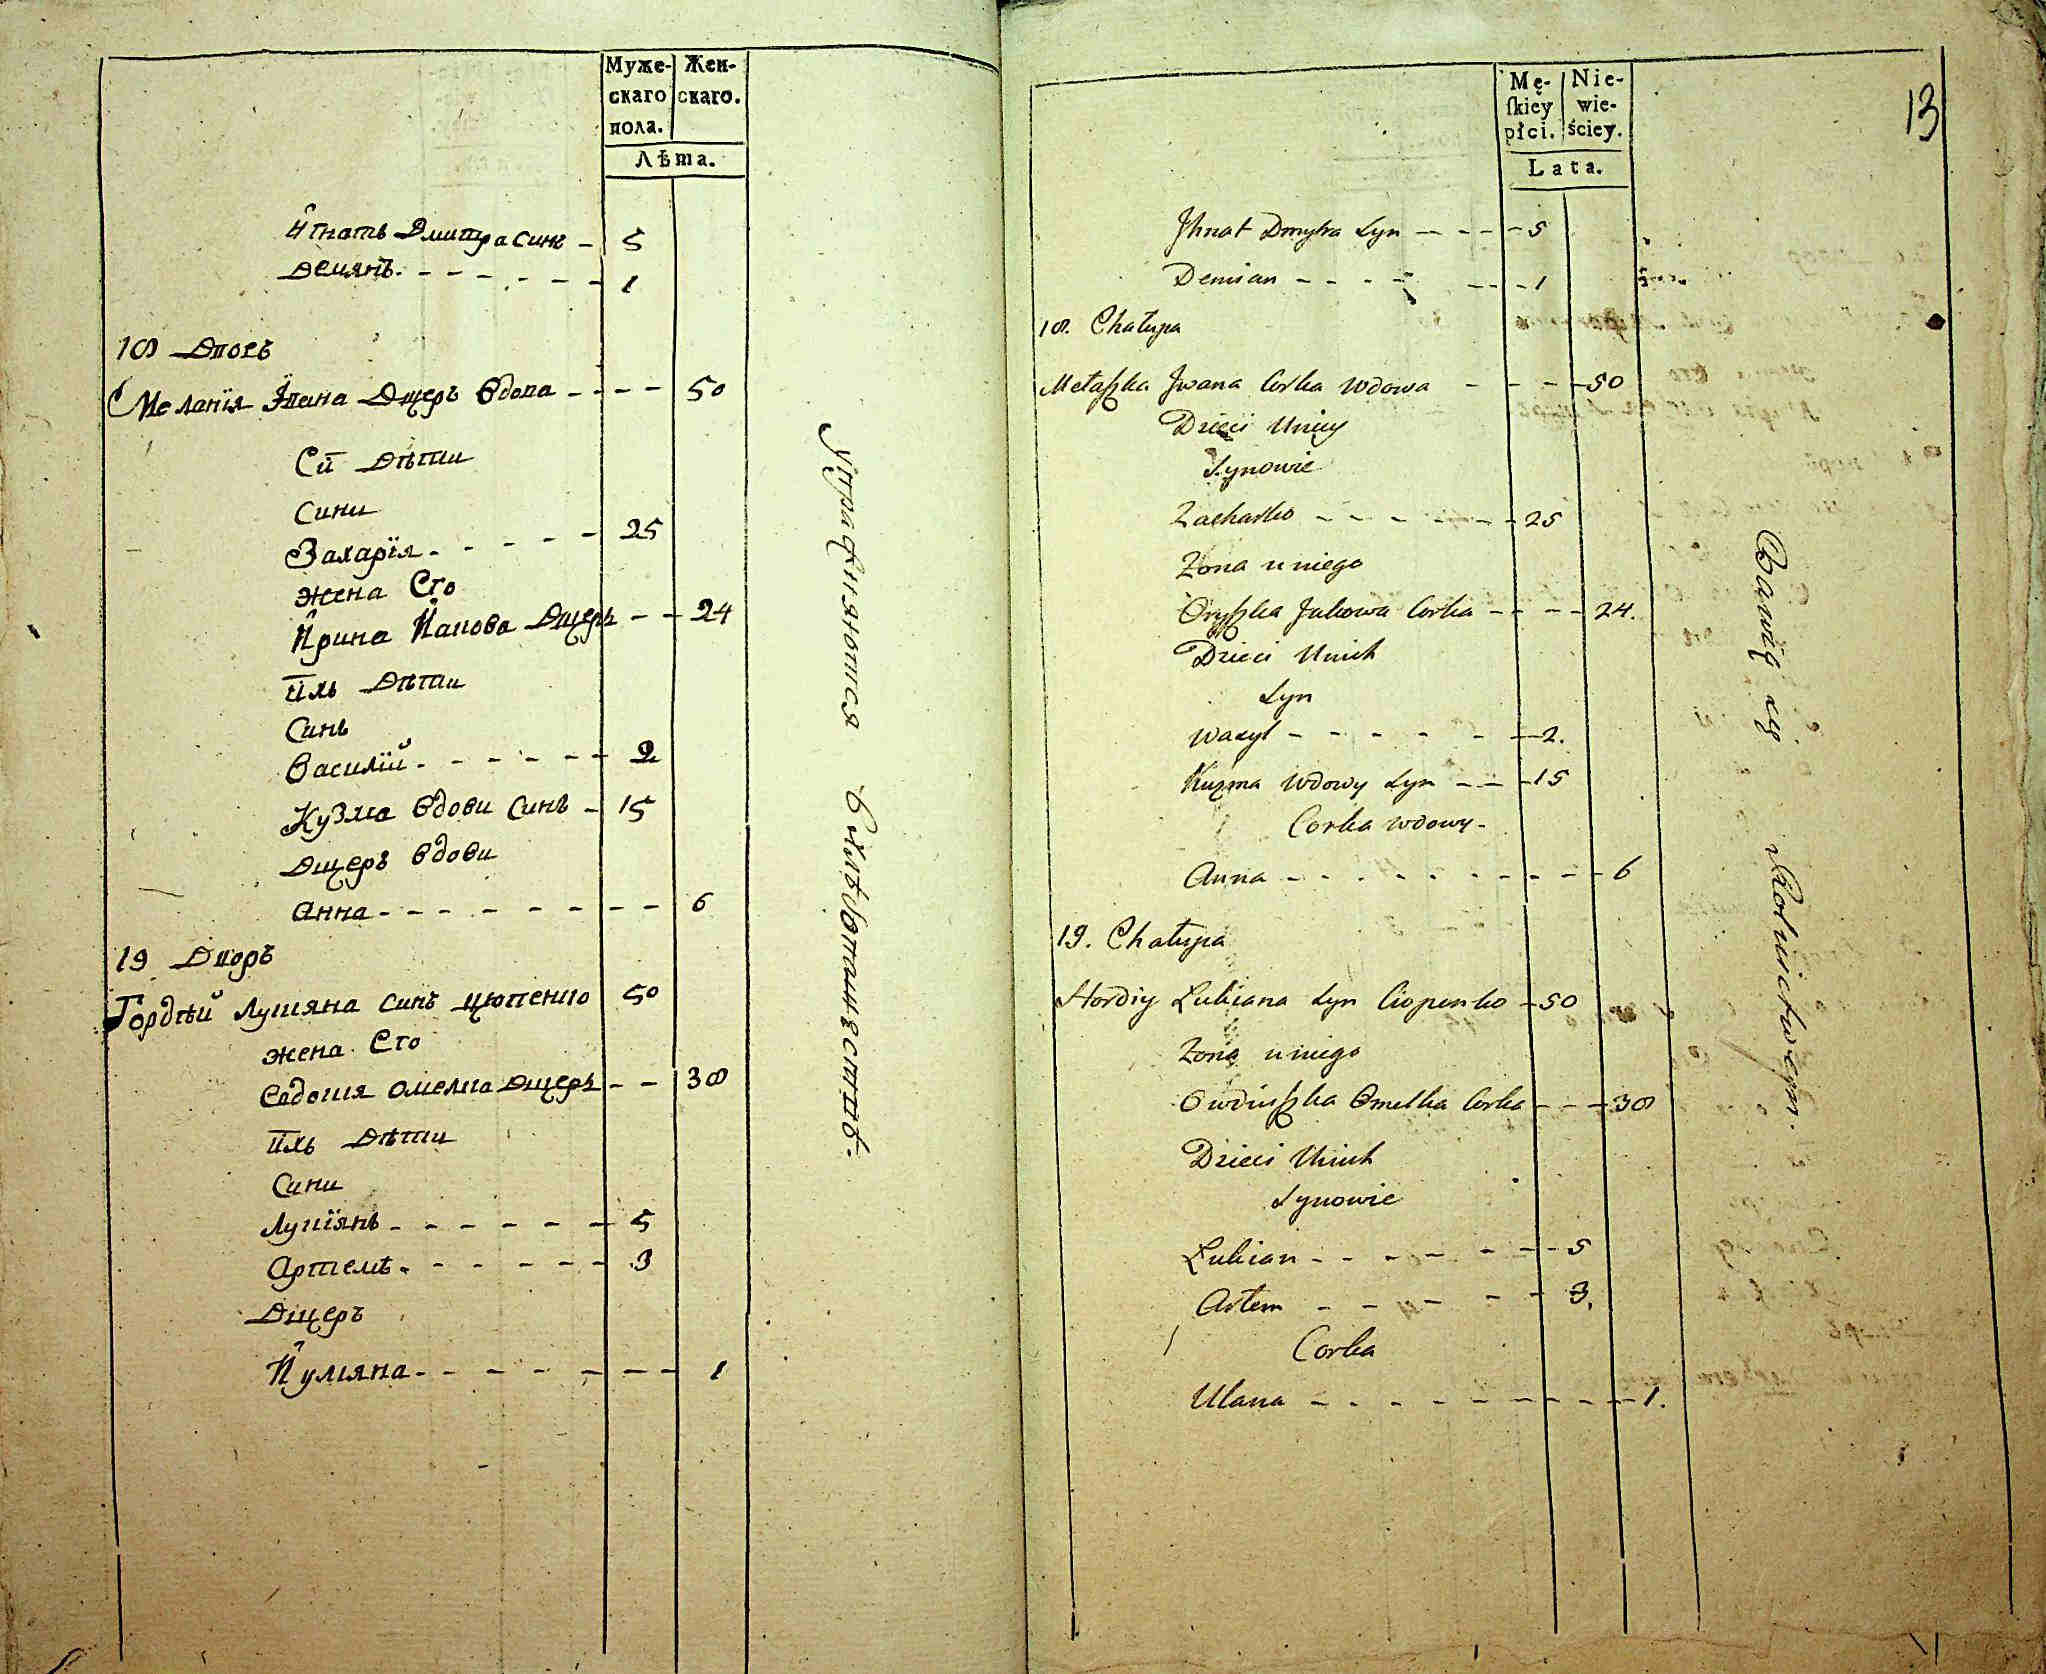 Муже- Жен-
скаго скаго.
пола.
Лѣта.
Игнатъ Дмитра синъ - 5
Демянъ. - - - - - - 1
18 Дворъ
Меланїя Ївана Дщеръ вдова - - - - 50
Єи Дѣти
Сини
Захарїя - - - - - 25
жена Єго
Ирина Якова Дщеръ - - 24
Ихъ Дѣти
Синъ
Василїй - - - - - - 2
Кузма вдови Синъ - 15
Дщеръ вдови
Анна - - - - - - - - 6
19 Дворъ
Гордѣй Лукяна синъ Цюпенко 50
жена Єго
Євдокия Омелка Дщеръ - - 38
ихъ Дѣти
Сини
Лукїянъ - - - - - - 5
Артемъ - - - - - - 3
Дщеръ
Иуляна - - - - - - - 1
Упражняются в хлѣбопашествѣ.
13
Mę- Nie-
ſkiey wie-
płci. ściey.
Lata.
Jhnat Dmytra Syn - - - - 5
Demian - - - - - - - 1
18. Chałupa
Mełaszka Jwana Corka Wdowa - - - - 50
Dzieci Uniey
Synowie
Zacharko - - - - - - - 25
Zona u niego
Oryszka Jakowa Corka - - - - 24.
Dzieci Unich
Syn
Wasyl - - - - - - - 2.
Kuzma Wdowy Syn - - - 15
Corka wdowy -
Anna - - - - - - - - - 6
19. Chałupa
Hordiy Łukiana Syn Ciopenko - 50
Zona u niego
Owdiuszka Omelka Corka - - - 38
Dzieci Unich
Synowie
Łukian - - - - - - - 5
Artem - - - - - - 3.
Corka
Ulana - - - - - - - - - 1.
Bawią się Rolnictwem.